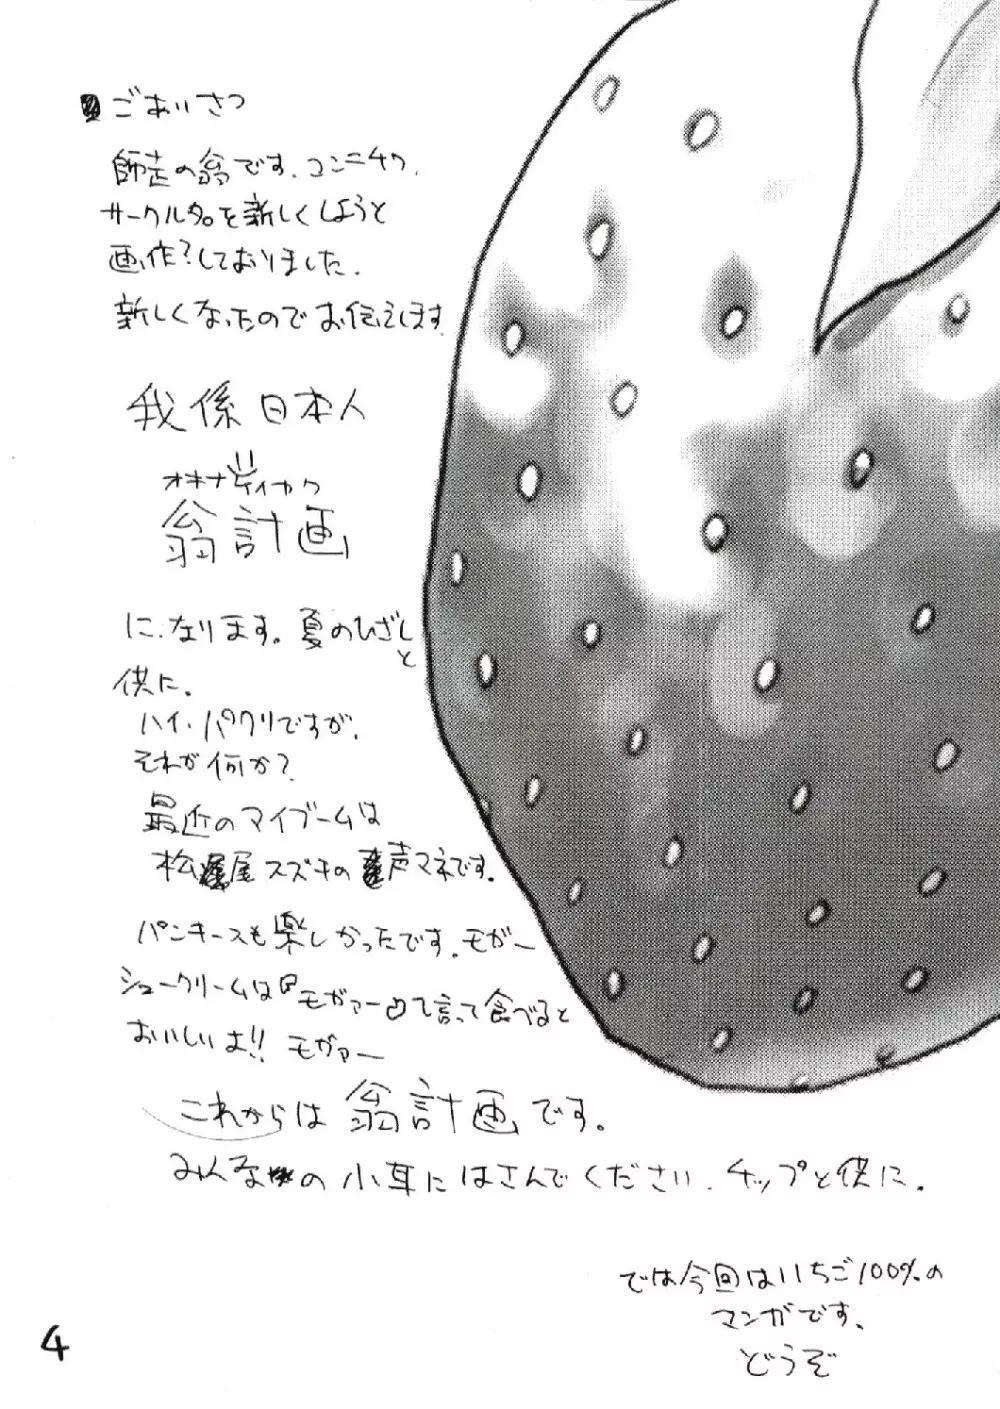 ごあいさつ
師走の翁です。コンニチワ。
サークル名を新しくしようと
画作?しておりました。
新しくなったのでお伝えします
我係日本人
オキナケイカク
翁計画
に、なります。夏のひざしと
供に。
ハイ、パクリですが、
それが何か?
最近のマイブームは
松尾スズキの声マネです。
パンキースも楽しかったです。モガー
シュークリームは『モガァー』て言って食べると
おいしいよ!! モガァー
これからは 翁計画です。
みんなの小耳にはさんでください。チップと供に。
では今回はいちご100%の
マンガです。
どうぞ
4